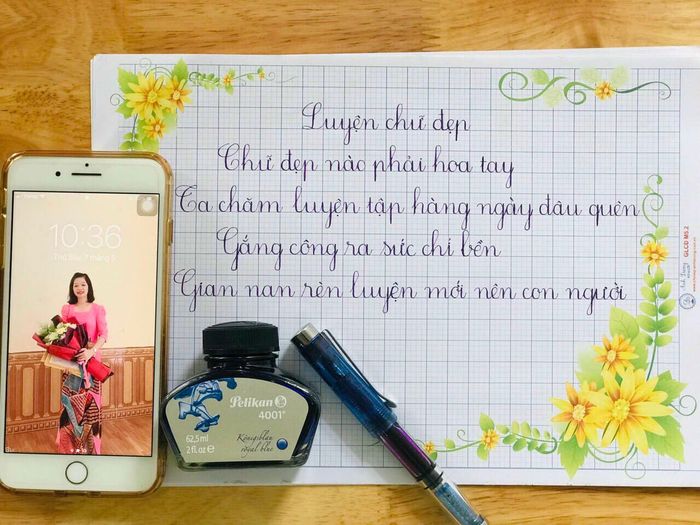 Luyện chữ đẹp
Chữ đẹp nào phải hoa tay
Ta chăm luyện tập hàng ngày đâu quên
Gắng công ra sức chí bền
Gian nan rèn luyện mới nên con người
10:36
Thứ Sáu, 7 tháng 5
Pelikan
4001
62,5 ml
2 fl. oz e
Königsblau
royal blue
GLCĐ MS.2
Anh Dương